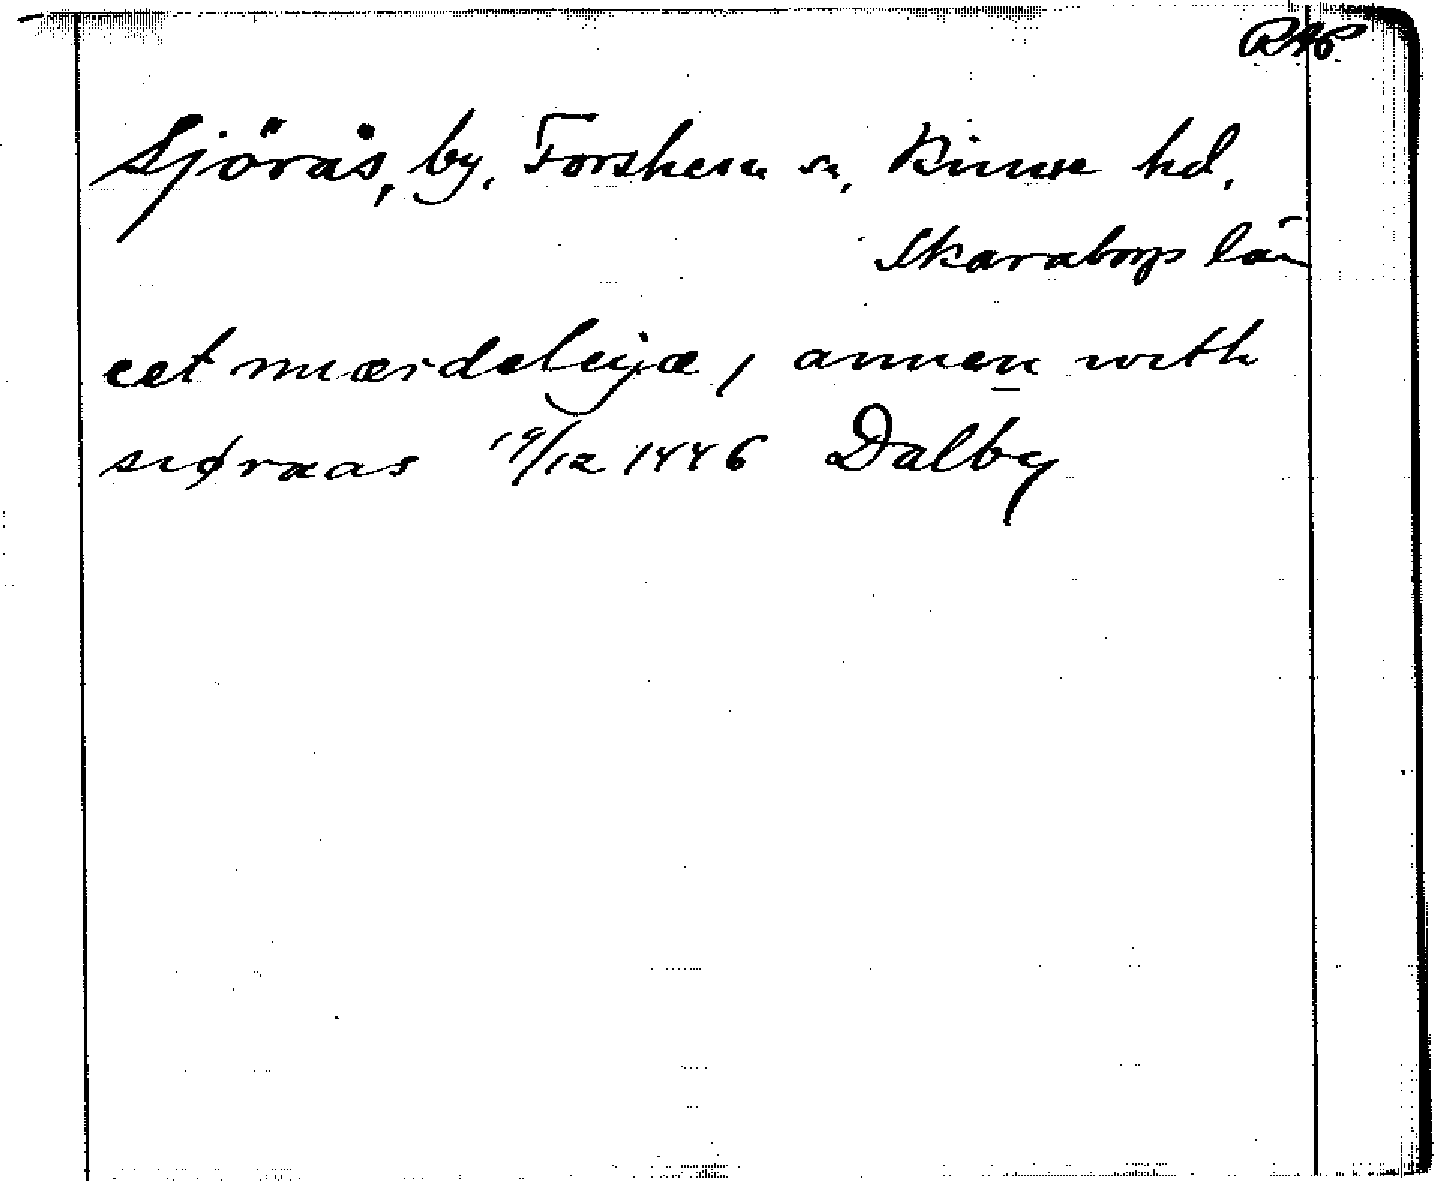 RAP
Sjörås, by, Forshem sn, Kinne hd,
Skaraborgs län
eet mærdeleijæ, annen with
siøraas 19/12 1446 Dalby